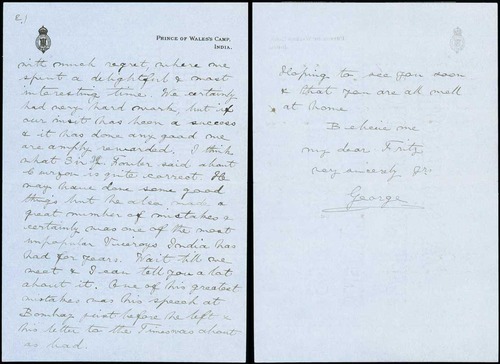 2.)
PRINCE OF WALES'S CAMP.
INDIA.
with much regret, where we
spent a delightful & most
interesting time. We certainly
had very hard work, but if
our visit has been a success
& it has done any good we
are amply rewarded. I think
what Sir H. Fowler said about
Curzon is quite correct. He
may have done some good
things but he also made a
great number of mistakes &
certainly was one of the most
unpopular Viceroys India has
had for years. Wait till we
meet & I can tell you a lot
about it. One of his greatest
mistakes was his speech at
Bombay just before he left &
his letter to the Times was about
as bad.
Hoping to see you soon
& that you are all well
at home
Believe me
my dear Fritz
very sincerely yrs.
George